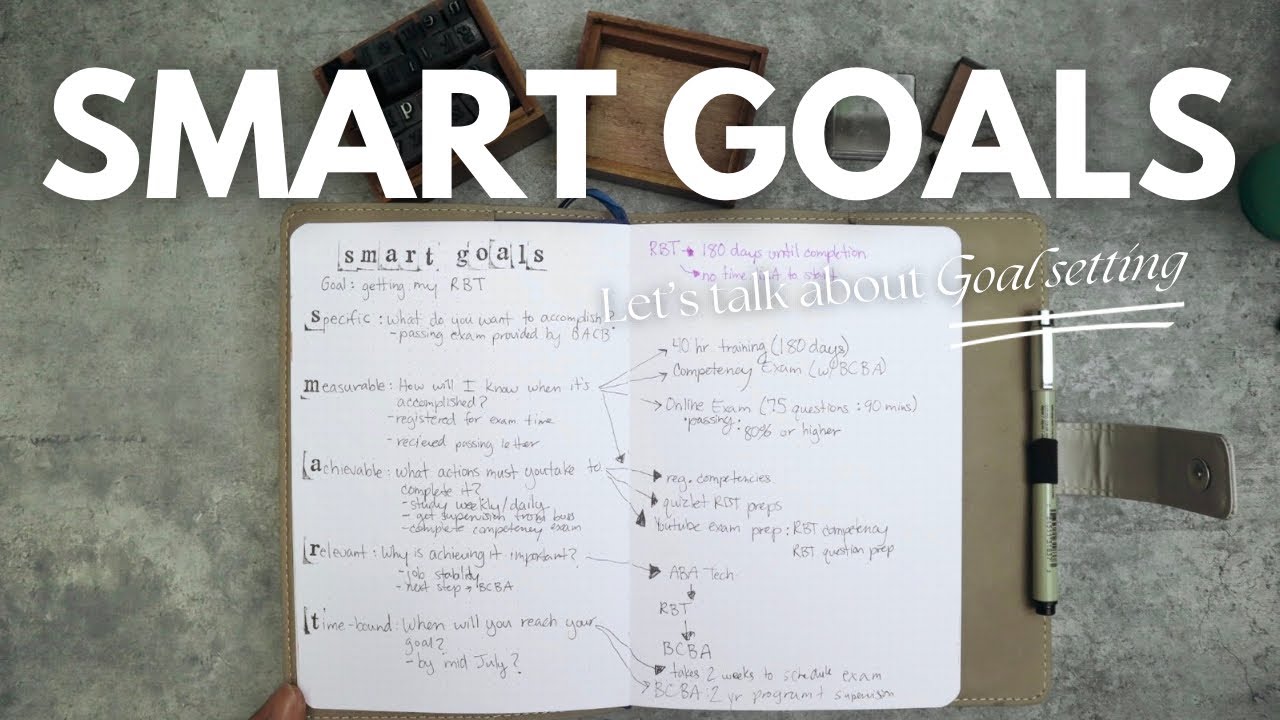 SMART GOALS
Let's talk about Goal setting
smart goals
Goal: getting my RBT
specific: what do you want to accomplish?
- passing exam provided by BACB
measurable: How will I know when it's
accomplished?
- registered for exam time
- recieved passing letter
achievable: what actions must you take to
complete it?
- study weekly/daily
- got supervision from
- complete competency exam
relevant: Why is achieving it important?
- job stability
- next step → BCBA
time-bound: When will you reach your
goal?
- by mid July?
RBT → 180 days until completion
→ no time to
40 hr training (180 days)
Competency Exam (w/ BCBA)
Online Exam (75 questions : 90 mins)
• passing: 80% or higher
reg. competencies
quizlet RBT preps
Youtube exam prep: RBT competency
RBT question prep
ABA Tech
RBT
BCBA
takes 2 weeks to schedule exam
BCBA: 2 yr program + supervision